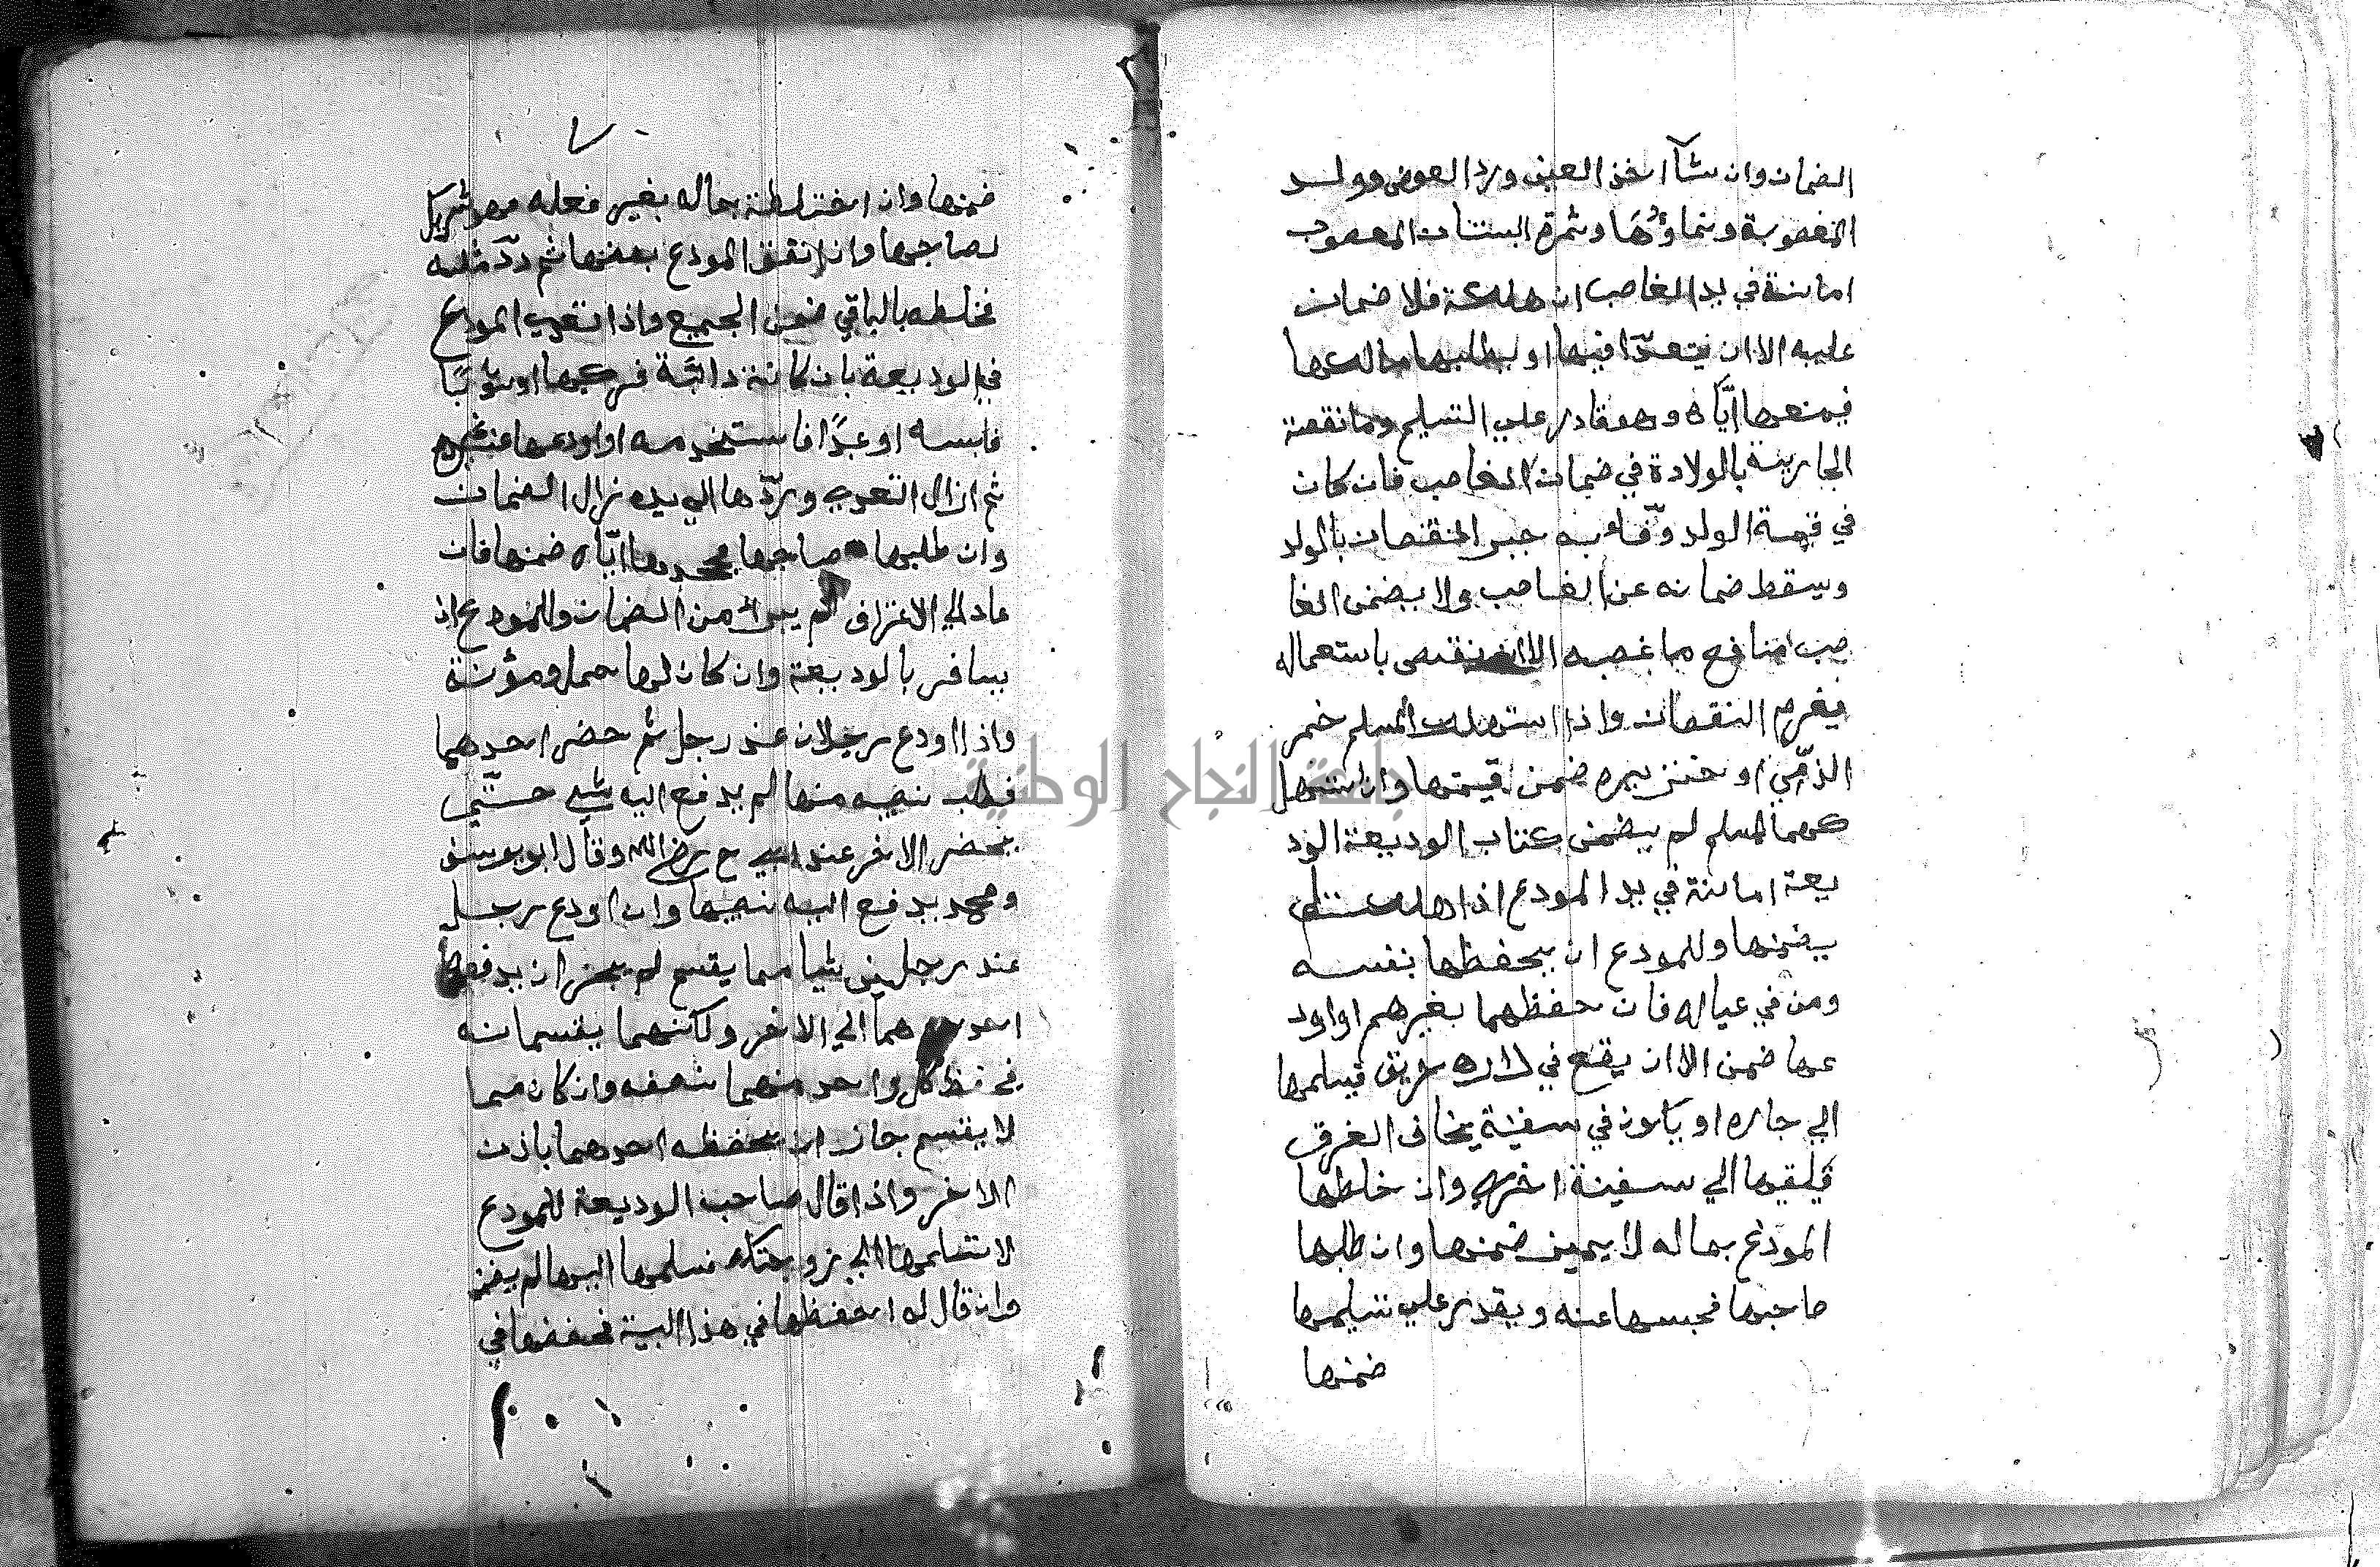 الضمان وان شآ اخذ العين ورد العوض وولد
المغصوبة ونماؤها وثمرة البستان المغصوب
امانة في يد الغاصب ان هلكة فلا ضمان
عليه الا ان يتعدّا فيها او يطلبها مالكها
فيمنعها ايّاه وهو قادر علي التسليم وما نقصة
الجارية بالولادة في ضمان الغاصب فان كان
في قيمة الولد وفآء به جبر النقصان بالولد
ويسقط ضمانه عن الغاصب ولا يضمن الغا
صب منافع ما غصبه الا ان ينقص باستعماله
فيغرم النقصان واذا استهلك المسلم خمر
الذمّي او خنزيره ضمن قيمتها وان استهل
كهما المسلم لم يضمن كتاب الوديعة الود
يعة امانة في يد المودع اذا هلكت لم
يضمنها وللمودع ان يحفظها بنفسه
ومن في عياله فان حفظهما بغيرهم او اود
عها ضمن الا ان يقع في داره حريق فيسلمها
الي جاره او يكون في سفينة يخاف الغرق
فيلقيها الي سفينة اخري وان خلطها
المودع بماله لا يميز ضمنها وان طلبها
صاحبها فحبسها عنه ويقدر علي تسليمها
ضمنها
٧
ضمنها وان اختلطة بماله بغير فعله فهو شريك
لصاحبها وان انفق المودع بعضها ثم ردّ مثله
فخلطه بالباقي ضمن الجميع واذا تعدي المودع
في الوديعة بان كانة دابّة فركبها او ثوبًا
فلبسه او عبدًا فاستخدمه او اودعها عند غيره
ثم ازال التعدي وردّها الي يده زال الضمان
وان طلبها صاحبها فجحدها ايّاه ضمنها فان
عاد الي الاعتراف لم يبرا من الضمان وللمودع ان
يسافر بالوديعة وان كان لها حمل ومؤنة
واذا اودع رجلان عند رجل ثم حضر احدهما
فطلب نصيبه منها لم يدفع اليه شي حتّي
يحضر الاخر عند ابي ح رضي الله وقال ابو يوسف
ومحمد يدفع اليه نصيبها وان اودع رجل
عند رجلين شيا مما يقسم لم يجز ان يدفعها
احدهما الي الاخر ولكنهما يقسمانه
فيحفظ كل واحد منهما نصفه وان كان مما
لا يقسم جاز ان يحفظه احدهما باذن
الاخر واذا قال صاحب الوديعة للمودع
لا تسلمها الي زوجتك فسلمها اليها لم يضمن
وان قال له احفظها في هذا البيت فحفظها في
جامعة النجاح الوطنية